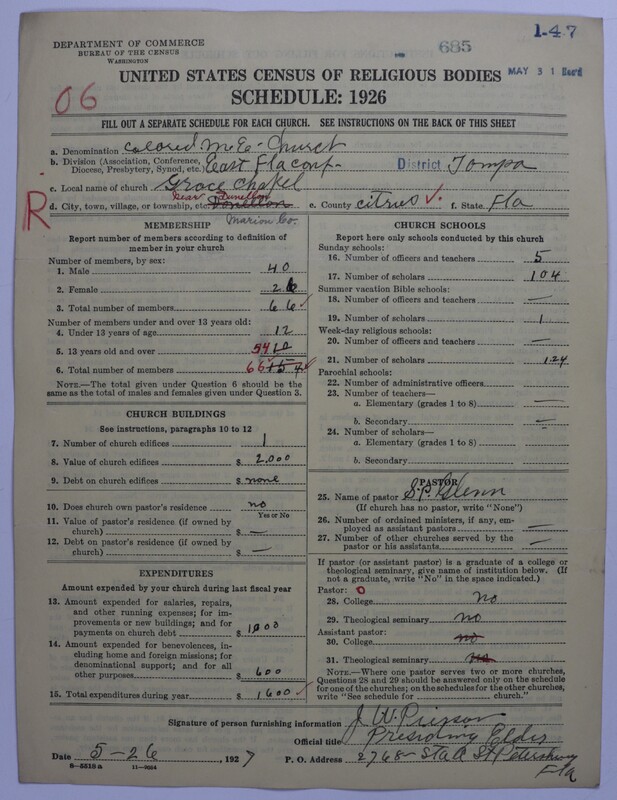 1-47
685
DEPARTMENT OF COMMERCE
BUREAU OF THE CENSUS
WASHINGTON
MAY 31 Rec'd
UNITED STATES CENSUS OF RELIGIOUS BODIES
SCHEDULE: 1926
06
FILL OUT A SEPARATE SCHEDULE FOR EACH CHURCH. SEE INSTRUCTIONS ON THE BACK OF THIS SHEET
a. Denomination Colored M.E. Church
b. Division (Association, Conference, Diocese, Presbytery, Synod, etc.) East Fla conf- District Tompa
c. Local name of church Grace Chapel
R
d. City, town, village, or township, etc. near Dunellon e. County citrus f. State Fla
Marion Co.
MEMBERSHIP
Report number of members according to definition of
member in your church
Number of members, by sex:
1. Male 40
2. Female 26
3. Total number of members 66
Number of members under and over 13 years old:
4. Under 13 years of age 12
5. 13 years old and over 54
6. Total number of members 66
NOTE.—The total given under Question 6 should be
the same as the total of males and females given under Question 3.
CHURCH BUILDINGS
See instructions, paragraphs 10 to 12
7. Number of church edifices 1
8. Value of church edifices $ 2,000
9. Debt on church edifices $ none
10. Does church own pastor's residence no
Yes or No
11. Value of pastor's residence (if owned by
church) $ —
12. Debt on pastor's residence (if owned by
church) $ —
EXPENDITURES
Amount expended by your church during last fiscal year
13. Amount expended for salaries, repairs,
and other running expenses; for im-
provements or new buildings; and for
payments on church debt $ 1000
14. Amount expended for benevolences,
including home and foreign missions; for
denominational support; and for all
other purposes $ 600
15. Total expenditures during year $ 1600
CHURCH SCHOOLS
Report here only schools conducted by this church
Sunday schools:
16. Number of officers and teachers 5
17. Number of scholars 104
Summer vacation Bible schools:
18. Number of officers and teachers —
19. Number of scholars 1
Week-day religious schools:
20. Number of officers and teachers —
21. Number of scholars 124
Parochial schools:
22. Number of administrative officers
23. Number of teachers—
a. Elementary (grades 1 to 8) —
b. Secondary —
24. Number of scholars—
a. Elementary (grades 1 to 8)
b. Secondary
PASTOR
25. Name of pastor S.P. Glenn
(If church has no pastor, write "None")
26. Number of ordained ministers, if any, em-
ployed as assistant pastors —
27. Number of other churches served by the
pastor or his assistants —
If pastor (or assistant pastor) is a graduate of a college or
theological seminary, give name of institution below. (If
not a graduate, write "No" in the space indicated.)
Pastor: 0
28. College no
29. Theological seminary no
Assistant pastor:
30. College no
31. Theological seminary no
NOTE.—Where one pastor serves two or more churches,
Questions 28 and 29 should be answered only on the schedule
for one of the churches; on the schedules for the other churches,
write "See schedule for church."
Signature of person furnishing information J. W. Pierson
Official title Presiding Elder
Date 5-26, 1927 P. O. Address 2768- Sta A St Petersburg
Fla
8—5518 a 11—9024